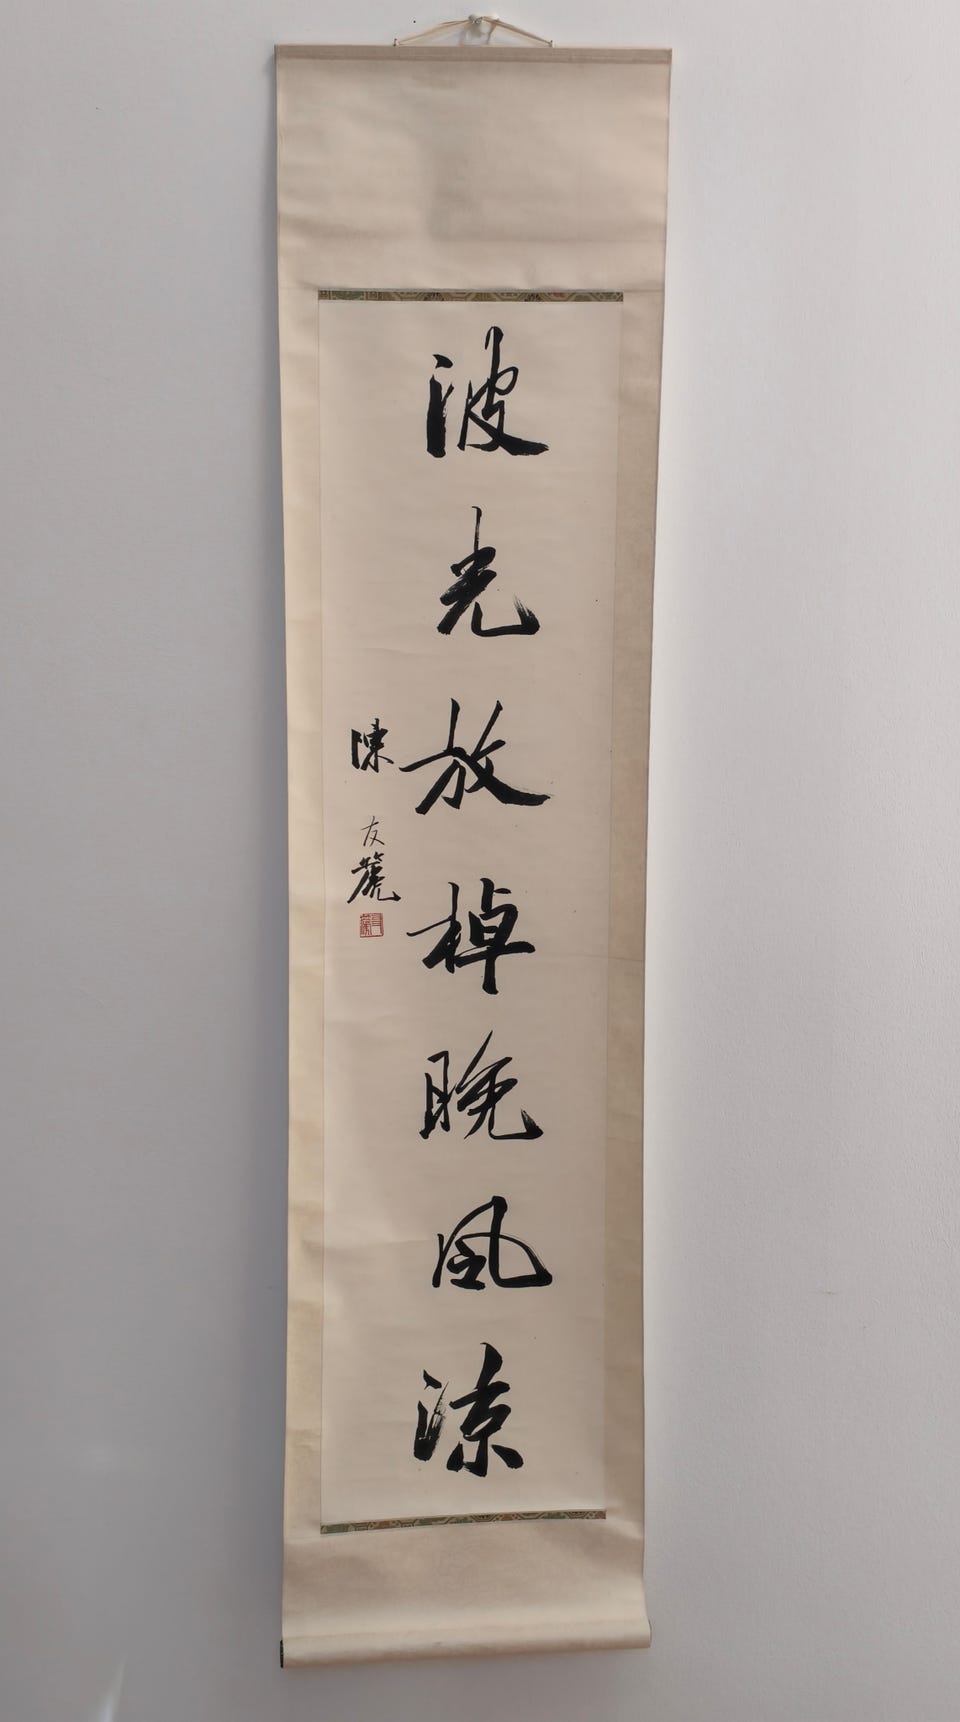 波光放棹晚風涼
陳友麓